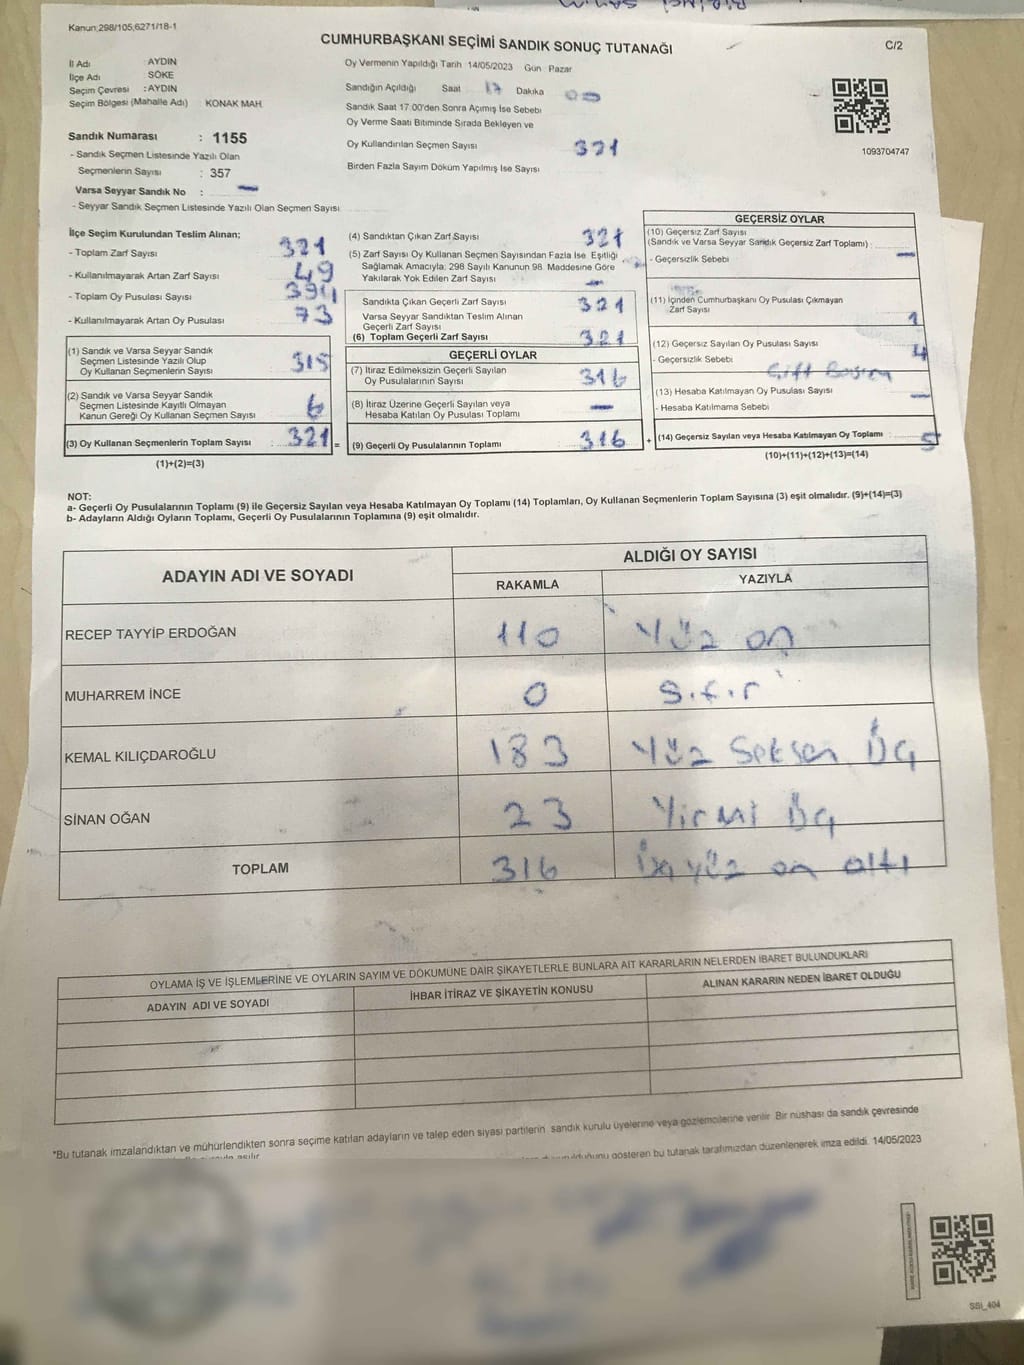 Kanun;298/105,6271/18-1
CUMHURBAŞKANI SEÇİMİ SANDIK SONUÇ TUTANAĞI
C/2
İl Adı : AYDIN
İlçe Adı : SÖKE
Seçim Çevresi : AYDIN
Seçim Bölgesi (Mahalle Adı) KONAK MAH.
Sandık Numarası : 1155
- Sandık Seçmen Listesinde Yazılı Olan
Seçmenlerin Sayısı : 357
Varsa Seyyar Sandık No : —
- Seyyar Sandık Seçmen Listesinde Yazılı Olan Seçmen Sayısı
Oy Vermenin Yapıldığı Tarih 14/05/2023 Gün Pazar
Sandığın Açıldığı Saat 17 Dakika 00
Sandık Saat 17:00'den Sonra Açılmış İse Sebebi
Oy Verme Saati Bitiminde Sırada Bekleyen ve
Oy Kullandırılan Seçmen Sayısı 321
Birden Fazla Sayım Döküm Yapılmış İse Sayısı
1093704747
İlçe Seçim Kurulundan Teslim Alınan;
- Toplam Zarf Sayısı 321
- Kullanılmayarak Artan Zarf Sayısı 49
- Toplam Oy Pusulası Sayısı 394
- Kullanılmayarak Artan Oy Pusulası 73
(1) Sandık ve Varsa Seyyar Sandık
Seçmen Listesinde Yazılı Olup
Oy Kullanan Seçmenlerin Sayısı 315
(2) Sandık ve Varsa Seyyar Sandık
Seçmen Listesinde Kayıtlı Olmayan
Kanun Gereği Oy Kullanan Seçmen Sayısı 6
(3) Oy Kullanan Seçmenlerin Toplam Sayısı : 321 =
(1)+(2)=(3)
(4) Sandıktan Çıkan Zarf Sayısı 321
(5) Zarf Sayısı Oy Kullanan Seçmen Sayısından Fazla İse Eşitliği
Sağlamak Amacıyla; 298 Sayılı Kanunun 98. Maddesine Göre
Yakılarak Yok Edilen Zarf Sayısı —
Sandıkta Çıkan Geçerli Zarf Sayısı 321
Varsa Seyyar Sandıktan Teslim Alınan
Geçerli Zarf Sayısı
(6) Toplam Geçerli Zarf Sayısı 321
GEÇERLİ OYLAR
(7) İtiraz Edilmeksizin Geçerli Sayılan
Oy Pusulalarının Sayısı 316
(8) İtiraz Üzerine Geçerli Sayılan veya
Hesaba Katılan Oy Pusulası Toplamı —
(9) Geçerli Oy Pusulalarının Toplamı : 316 +
GEÇERSİZ OYLAR
(10) Geçersiz Zarf Sayısı
(Sandık ve Varsa Seyyar Sandık Geçersiz Zarf Toplamı) : —
- Geçersizlik Sebebi
(11) İçinden Cumhurbaşkanı Oy Pusulası Çıkmayan
Zarf Sayısı 1
(12) Geçersiz Sayılan Oy Pusulası Sayısı 4
- Geçersizlik Sebebi Çift Basım
(13) Hesaba Katılmayan Oy Pusulası Sayısı —
- Hesaba Katılmama Sebebi
(14) Geçersiz Sayılan veya Hesaba Katılmayan Oy Toplamı : 5
(10)+(11)+(12)+(13)=(14)
NOT:
a- Geçerli Oy Pusulalarının Toplamı (9) ile Geçersiz Sayılan veya Hesaba Katılmayan Oy Toplamı (14) Toplamları, Oy Kullanan Seçmenlerin Toplam Sayısına (3) eşit olmalıdır. (9)+(14)=(3)
b- Adayların Aldığı Oyların Toplamı, Geçerli Oy Pusulalarının Toplamına (9) eşit olmalıdır.
ADAYIN ADI VE SOYADI
ALDIĞI OY SAYISI
RAKAMLA YAZIYLA
RECEP TAYYİP ERDOĞAN 110 Yüz on
MUHARREM İNCE 0 Sıfır
KEMAL KILIÇDAROĞLU 183 Yüz Seksen Üç
SİNAN OĞAN 23 Yirmi Üç
TOPLAM 316 yüz on altı
OYLAMA İŞ VE İŞLEMLERİNE VE OYLARIN SAYIM VE DÖKÜMÜNE DAİR ŞİKAYETLERLE BUNLARA AİT KARARLARIN NELERDEN İBARET BULUNDUKLARI
ADAYIN ADI VE SOYADI İHBAR İTİRAZ VE ŞİKAYETİN KONUSU ALINAN KARARIN NEDEN İBARET OLDUĞU
*Bu tutanak imzalandıktan ve mühürlendikten sonra seçime katılan adayların ve talep eden siyasi partilerin, sandık kurulu üyelerine veya gözlemcilerine verilir. Bir nüshası da sandık çevresinde
gösteren bu tutanak tarafımızdan düzenlenerek imza edildi. 14/05/2023
SSI_404